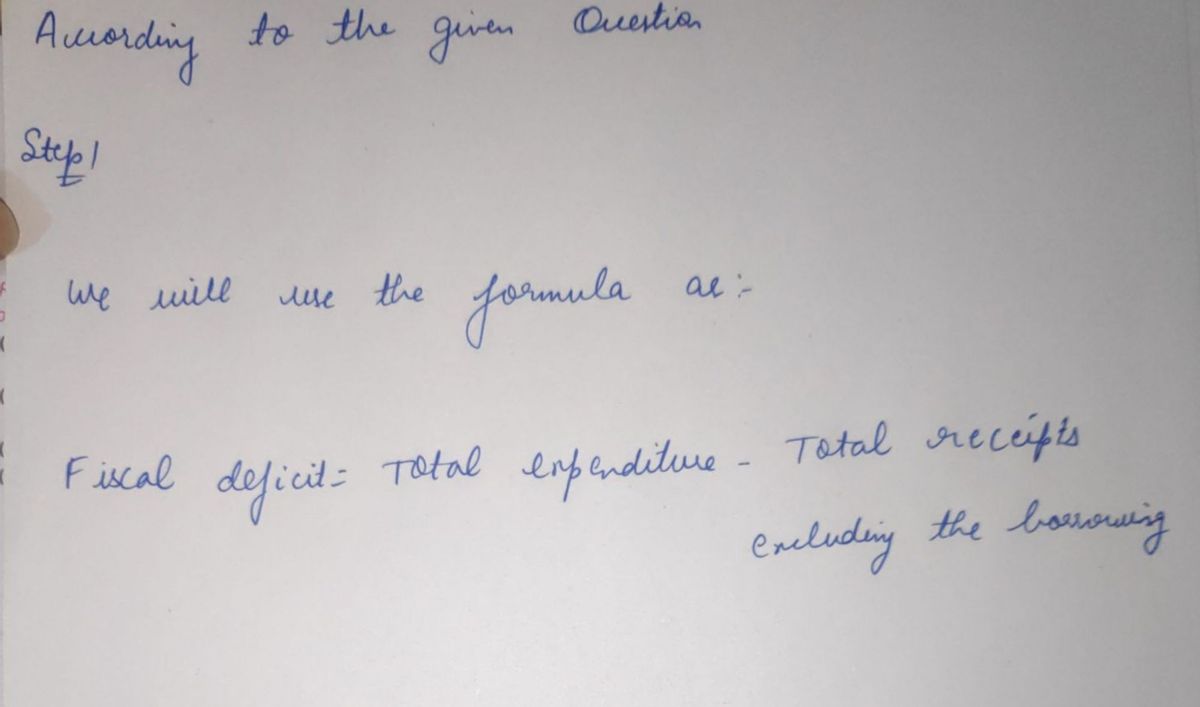 According to the given Question
Step 1
We will use the formula as:-
Fiscal deficit = Total expenditure - Total receipts
excluding the borrowing